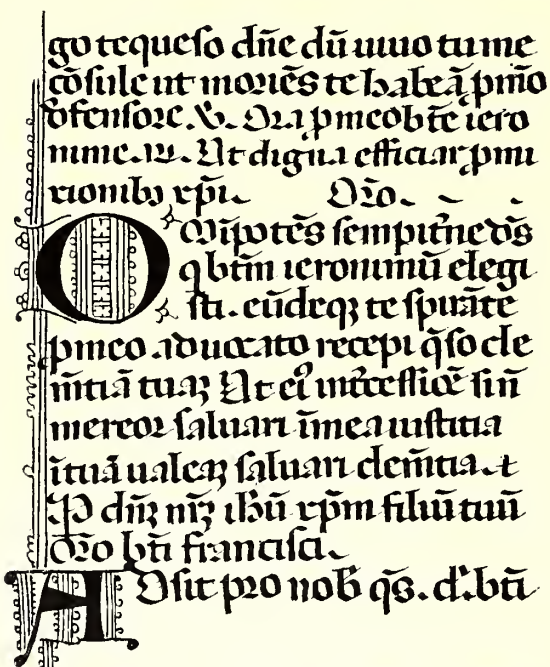 go teq̃so dñe dũ uiuo tu me
cõsule ut moriẽs te habeã ꝓmõ
dfensore. V. Ora ꝓ me obte iero
nime. R. Ut digna efficiar ꝓmi
xionibꝫ xp̃i. Oro.
Omipotẽs sempit̃ne ds̃
q btm̃ ieronimũ elegi
sti. eũdeqꝫ te spirãte
ꝓ meo aduocato recepi q̃so cle
m̃tiã tuaꝫ Ut ei interessioẽ siñ
mereor saluari ĩ mea iustitia
ĩ tuã ualeaꝫ saluari clem̃tia. t
P dñꝫ nr̃ꝫ ihũ xp̃m filiũ tuũ
Oro bt̃i francisci.
Adsit pro nob̃ q̃s. d̃. bt̃i